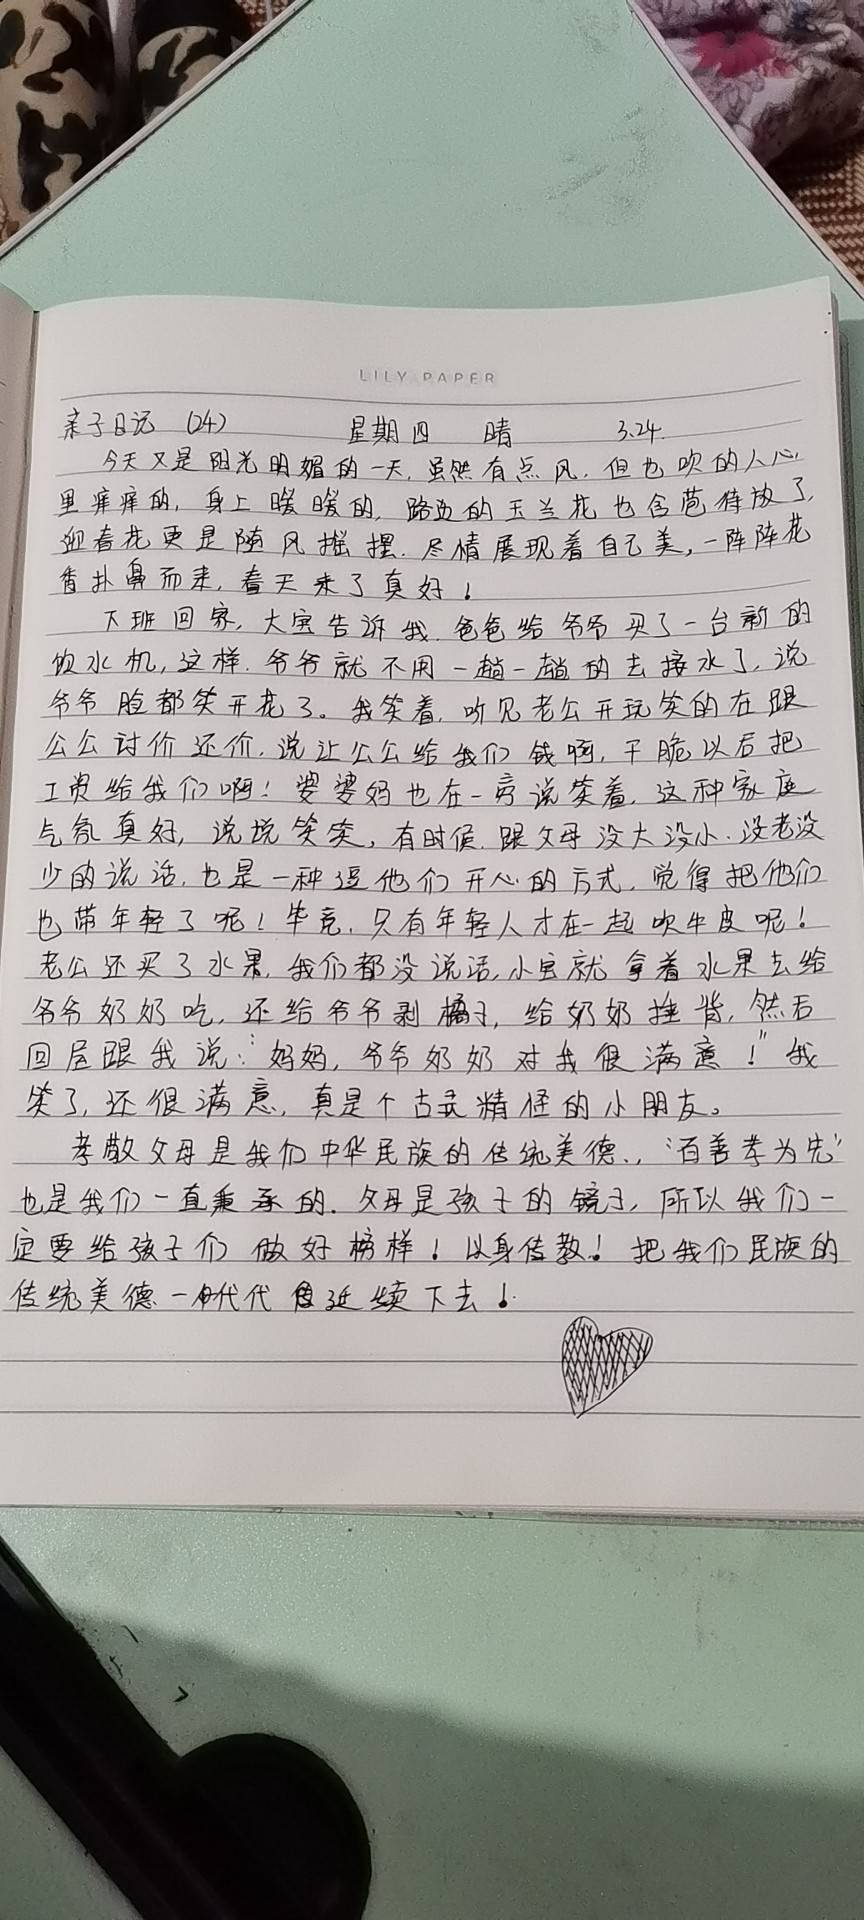 LILY PAPER
亲子日记 (24) 星期四 晴 3.24.
今天又是阳光明媚的一天,虽然有点风,但也吹的人心
里痒痒的,身上暖暖的,路边的玉兰花也含苞待放了,
迎春花更是随风摇摆,尽情展现着自己美,一阵阵花
香扑鼻而来,春天来了真好!
下班回家,大宝告诉我,爸爸给爷爷买了一台新的
饮水机,这样,爷爷就不用一趟一趟的去接水了,说
爷爷脸都笑开花了。我笑着,听见老公开玩笑的在跟
公公讨价还价,说让公公给我们钱啊,干脆以后把
工资给我们啊!婆婆妈也在一旁说笑着,这种家庭
气氛真好,说说笑笑,有时候,跟父母没大没小,没老没
少的说话,也是一种逗他们开心的方式,觉得把他们
也带年轻了呢!毕竟,只有年轻人才在一起吹牛皮呢!
老公还买了水果,我们都没说话,小宝就拿着水果去给
爷爷奶奶吃,还给爷爷剥橘子,给奶奶捶背,然后
回屋跟我说:“妈妈,爷爷奶奶对我很满意!”我
笑了,还很满意,真是个古灵精怪的小朋友。
孝敬父母是我们中华民族的传统美德.,“百善孝为先”
也是我们一直秉承的.父母是孩子的镜子,所以我们一
定要给孩子们做好榜样!以身传教!把我们民族的
传统美德一代代延续下去!